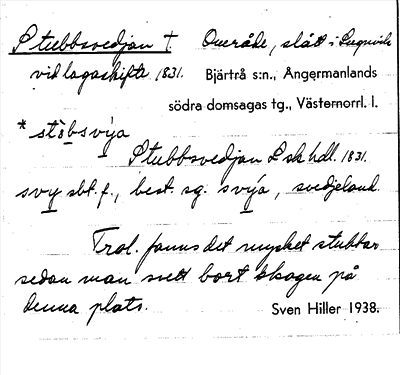 Stubbsvedjan †. Område, slått i Lugnvik
vid lagaskifte 1831. Bjärtrå s:n., Ångermanlands
södra domsagas tg., Västernorrl. l.
* stòbsvy̆a
Stubbsvedjan L sk hdl. 1831.
svy sbt. f., best. sg. svýa, svedjeland.
Trol. fanns det mycket stubbar
sedan man svett bort skogen på
denna plats. Sven Hiller 1938.